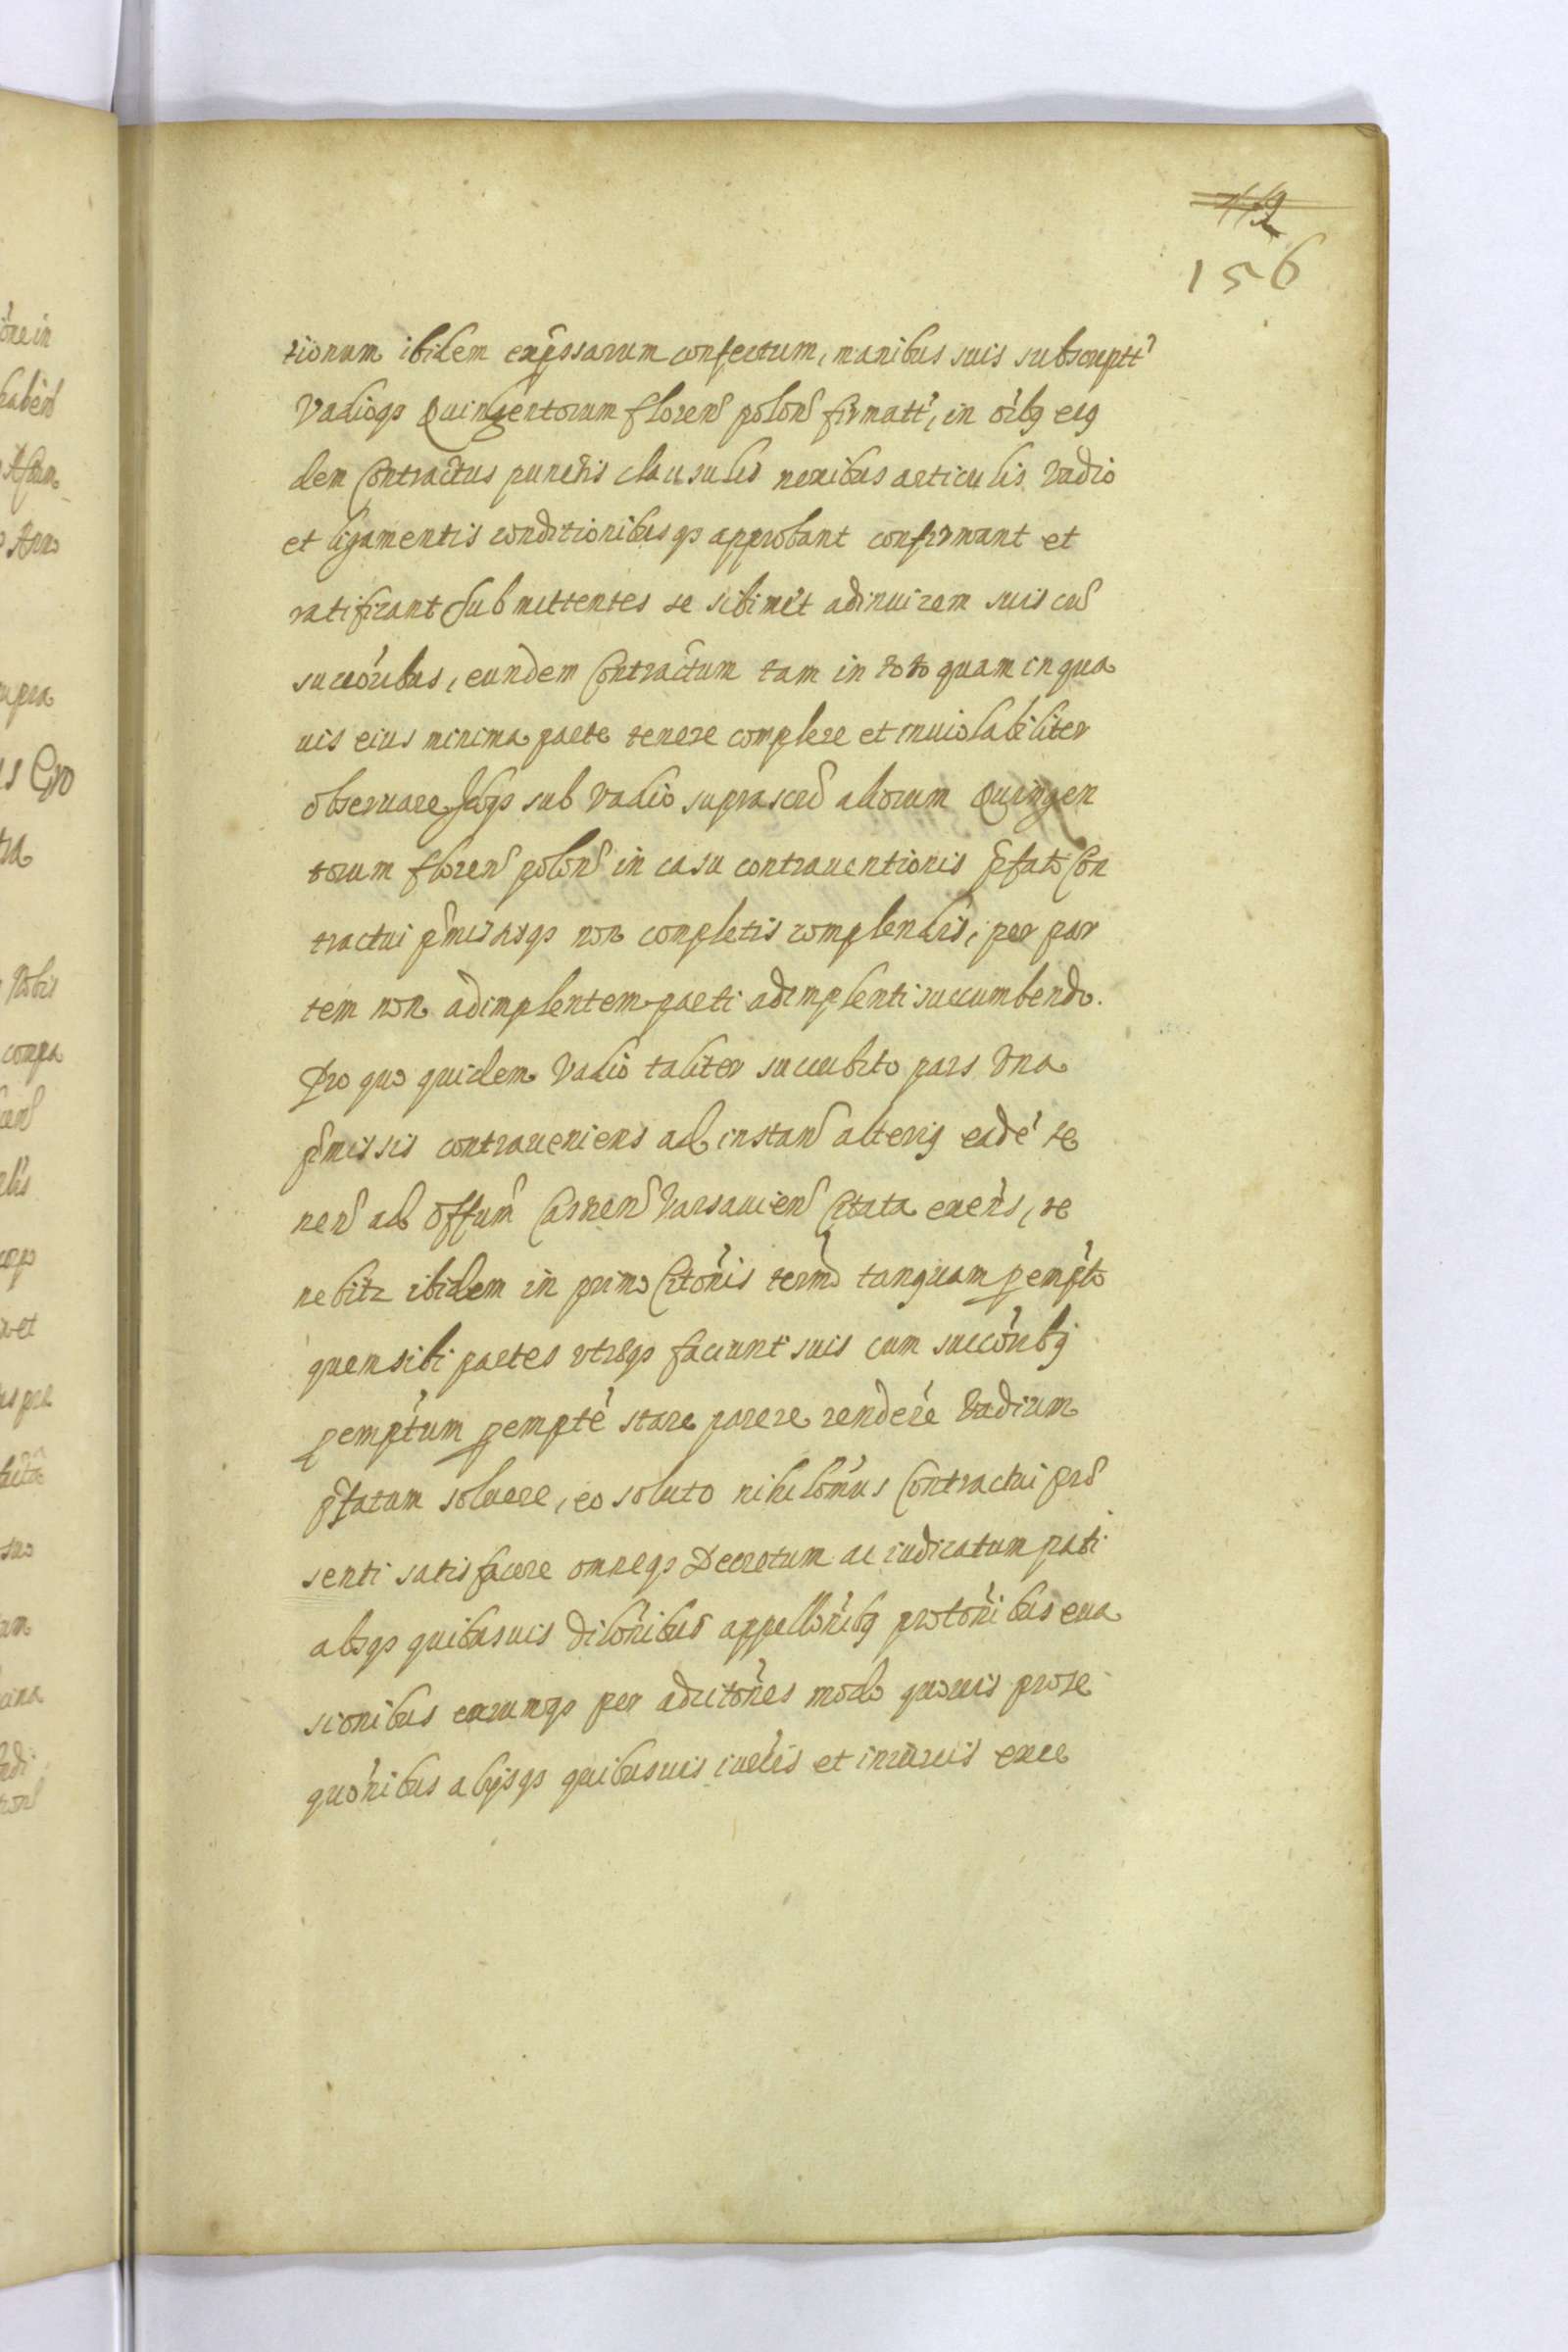 112
156
tionum ibidem exp̃ssarum confectum, manibus suis subscriptt
Vadioqȝ Quingentorum floren̄ polon̄ firmatt, in oībq eiq
dem Contractus punctis clausulis nexibus articulis Vadio
et ligamentis conditionibusqȝ approbant confirmant et
ratificant Submittentes se sibimet adinuicem suis cum̄
succōribus, eundem Contractum tam in toto quam in qua
uis eius minima parte tenere complere et inuiolabiliter
obseruare, sub Vadio suprascr̄ aliorum Quingen
torum floren̄ polon̄ in casu contrauentionis p̃fato Con
tractui p̃missisqȝ non completis complendis, per par
tem non adimplentem parti adimplenti succumbendo.
Pro quo quidem Vadio taliter succubito pars Vna
p̃missis contraueniens ad instan̄ alteriq eadē te
nen̄ ad Offum̄ Castren̄ Varsauien̄ Citata exens̄, te
nebitr ibidem in primo Citōnis termō tanquam pempto
quem sibi partes vtræqȝ faciunt suis cum succōribq
pemptum pempte stare parere rendere Vadium
p̃fatum soluere, eo soluto nihilomin̄us Contractui præ
senti satisfacere omneqȝ Decretum ac iudicatum pati
absqȝ quibusuis dilōnibus appellōnibq protōnibus eua
sionibus earumqȝ per adcitōnes modo quouis prose
quōnibus alijsqȝ quibusuis iuris et iniuris exce